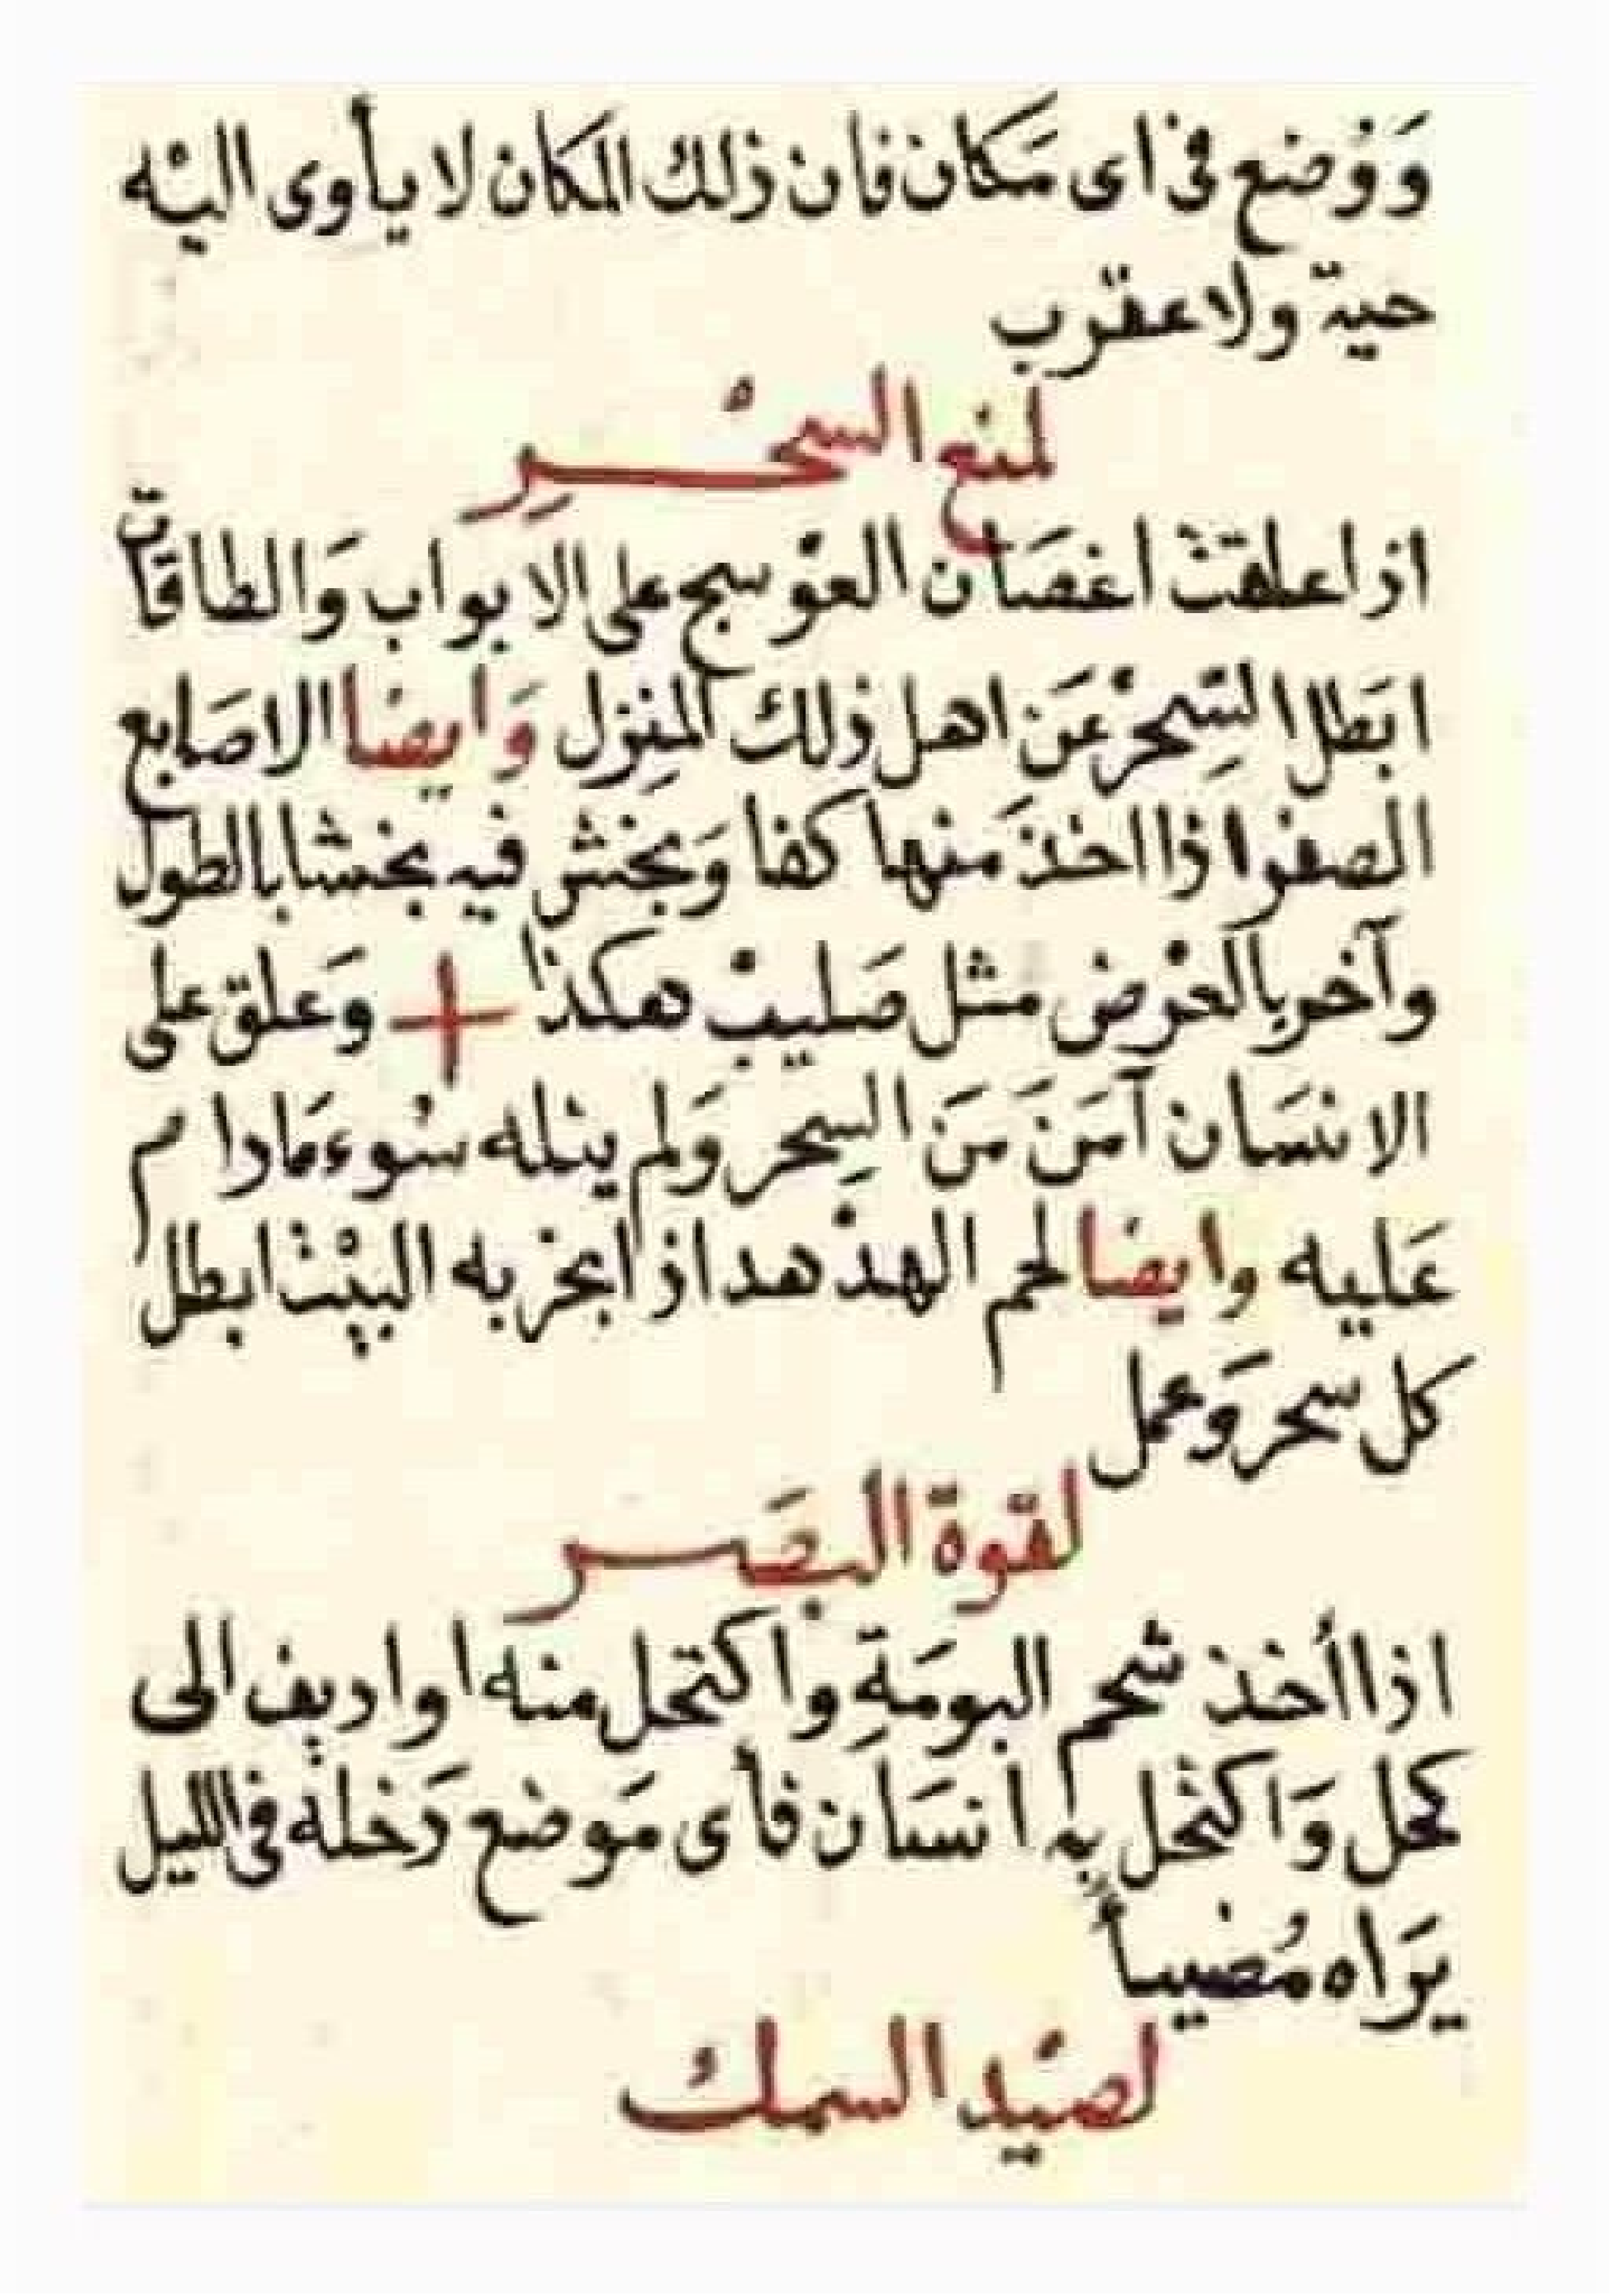 وَوُضع فى اى مَكان فان ذلك المكان لا يأوى اليْه
حية ولا عقرب
لمنع السحْر
اذا علقت اغصَان العوْسج على الابواب وَالطاقات
ابَطل السِّحرْ عَن اهل ذلك المنِزل وَايضا الاصَابع
الصفرا اذا اخذ منها كفا وَبخش فيه بخشا بالطول
وآخر بالعرْض مثل صَليبْ هكذا + وَعلق على
الانسَان آمَنَ مَن السِحر وَلم ينله سُوء مَادام
عَليه وايضا لحم الهدْهد اذا بخر به البيْت ابطل
كل سحر وَعمل
لقوة البصَر
اذا اُخذ شحم البومَةِ واكتحل منه او اديف الى
كحل وَاكتحل به انسَان فأى مَوضع دَخله فى الليل
يَراه مُضيأً
لصيْد السمك